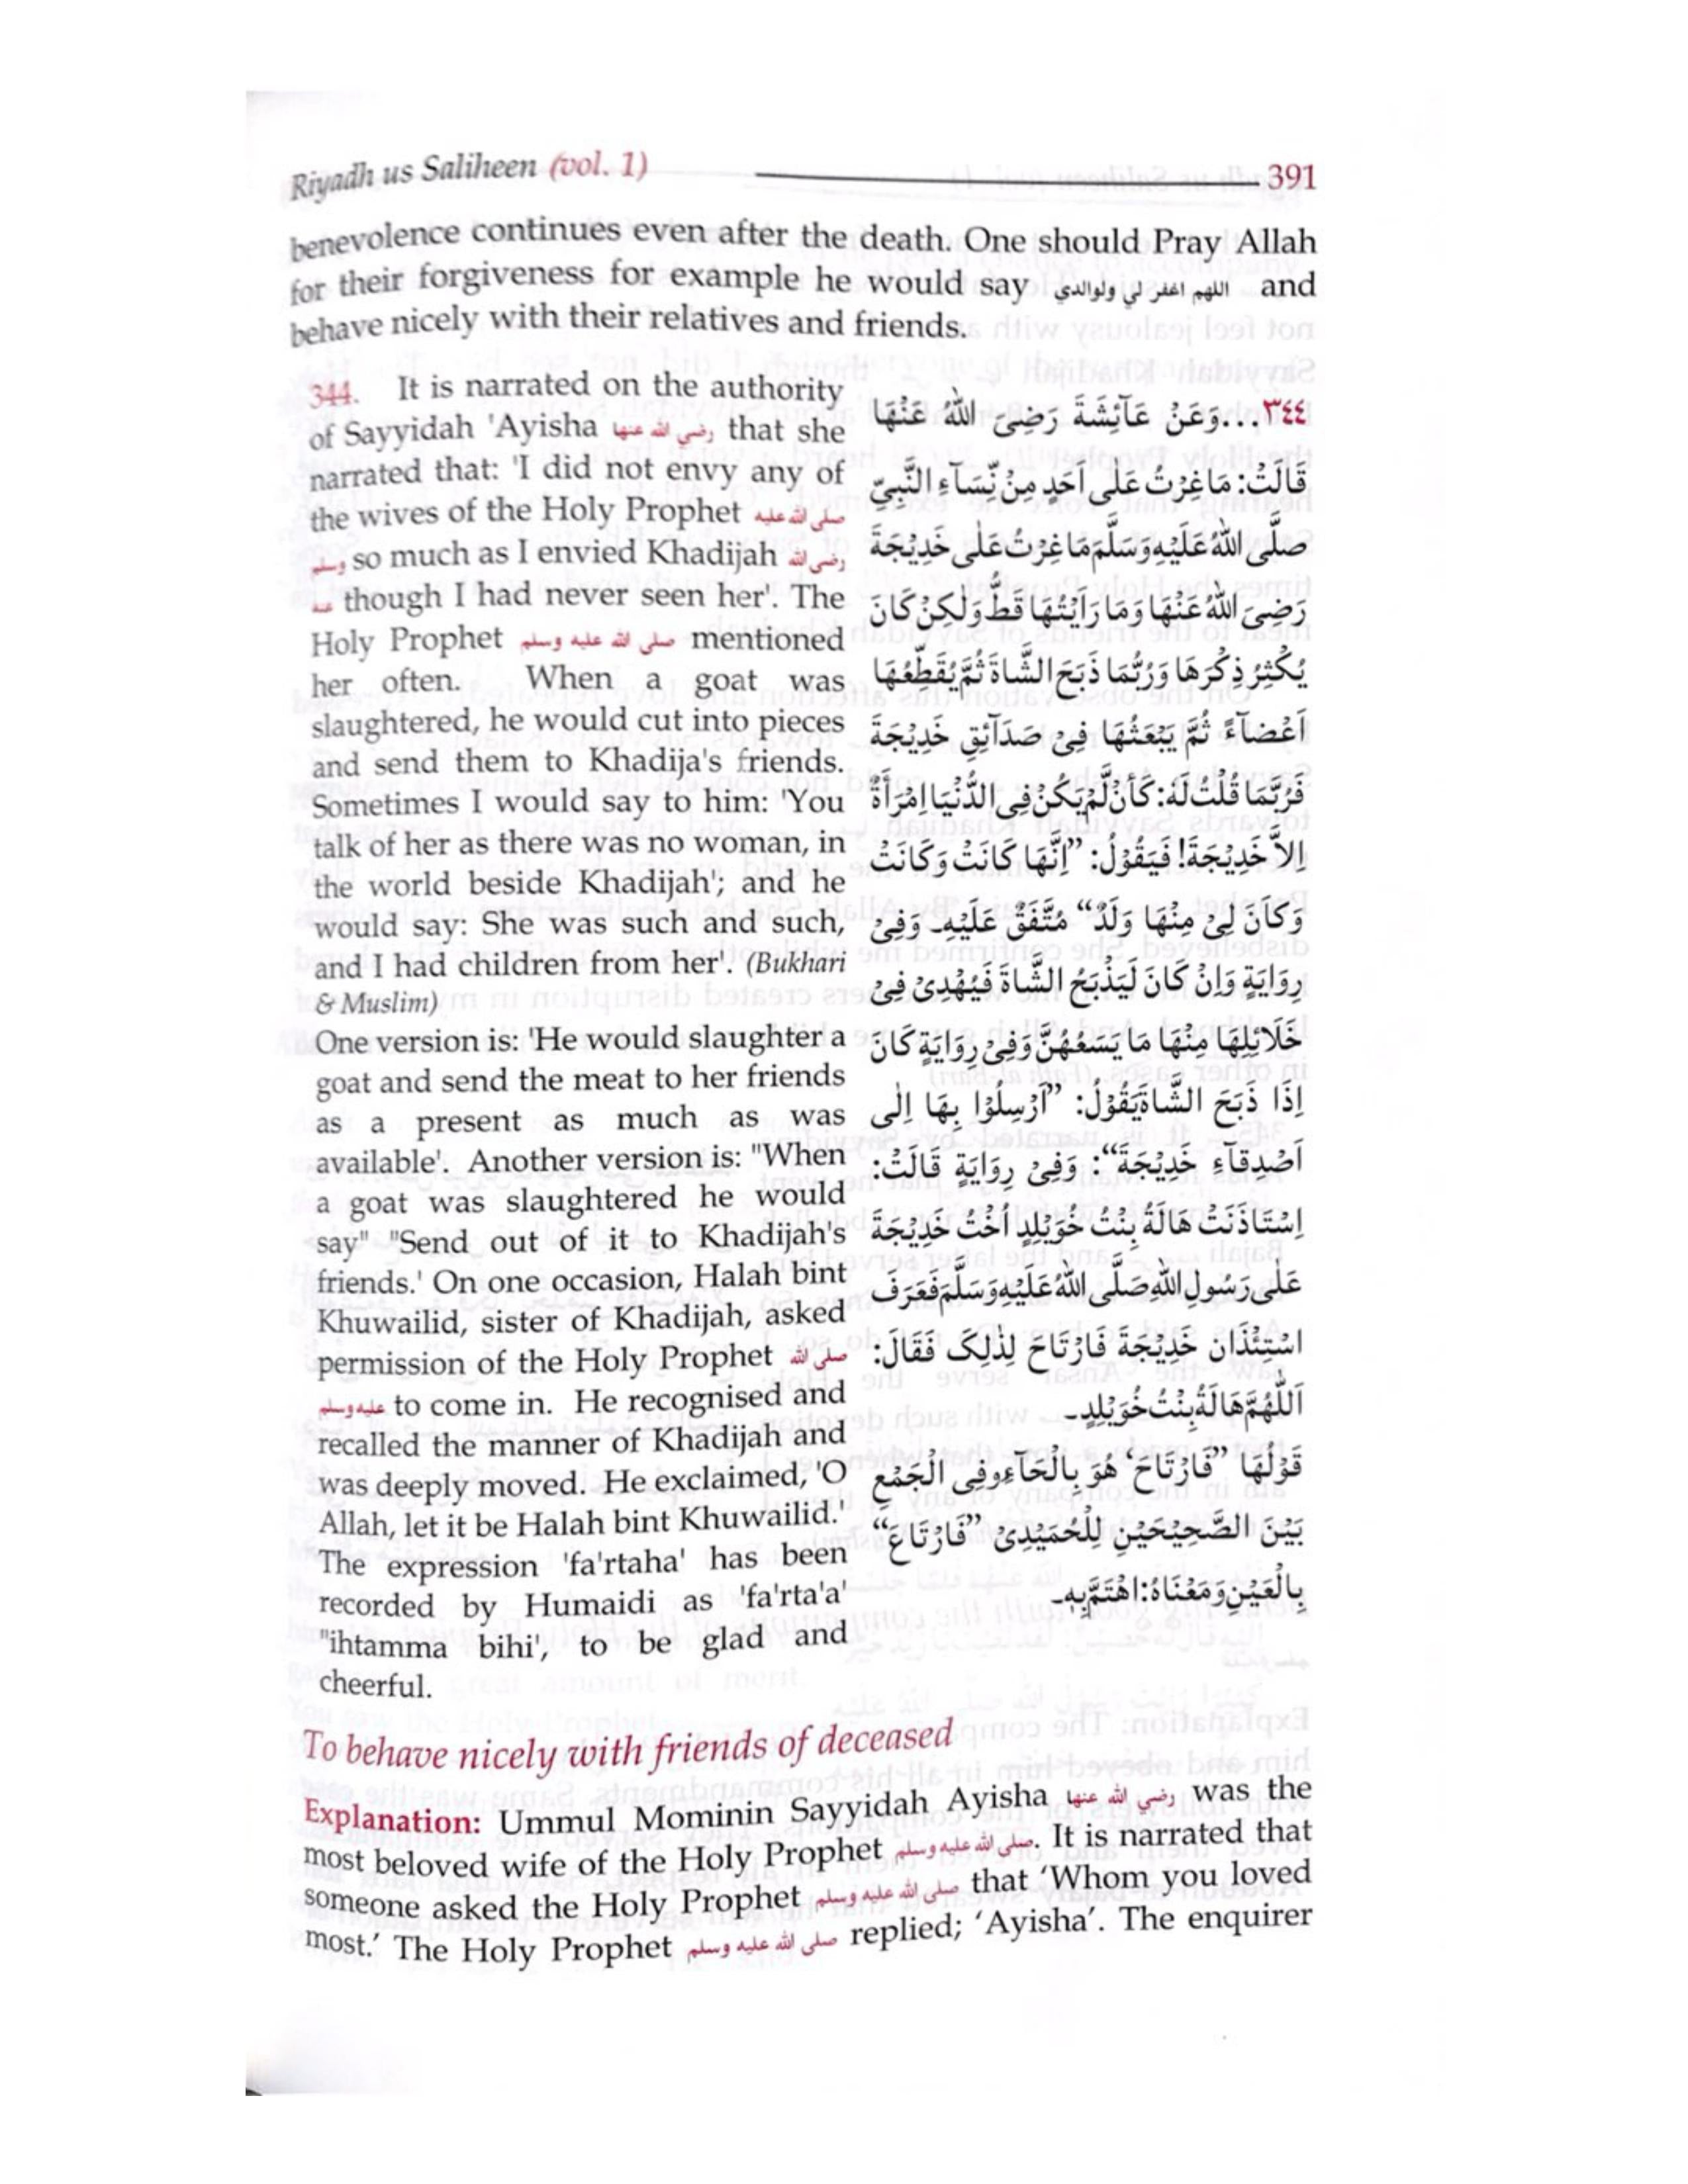 Riyadh us Saliheen (vol. 1) 391
benevolence continues even after the death. One should Pray Allah
for their forgiveness for example he would say اللهم اغفر لي ولوالدي and
behave nicely with their relatives and friends.
344. It is narrated on the authority
of Sayyidah 'Ayisha رضي الله عنها that she
narrated that: 'I did not envy any of
the wives of the Holy Prophet صلى الله عليه
وسلم so much as I envied Khadijah رضي الله
عنها though I had never seen her'. The
Holy Prophet صلى الله عليه وسلم mentioned
her often. When a goat was
slaughtered, he would cut into pieces
and send them to Khadija's friends.
Sometimes I would say to him: 'You
talk of her as there was no woman, in
the world beside Khadijah'; and he
would say: She was such and such,
and I had children from her'. (Bukhari
& Muslim)
One version is: 'He would slaughter a
goat and send the meat to her friends
as a present as much as was
available'. Another version is: "When
a goat was slaughtered he would
say" "Send out of it to Khadijah's
friends.' On one occasion, Halah bint
Khuwailid, sister of Khadijah, asked
permission of the Holy Prophet صلى الله
عليه وسلم to come in. He recognised and
recalled the manner of Khadijah and
was deeply moved. He exclaimed, 'O
Allah, let it be Halah bint Khuwailid.'
The expression 'fa'rtaha' has been
recorded by Humaidi as 'fa'rta'a'
"ihtamma bihi', to be glad and
cheerful.
٣٤٤...وَعَنْ عَآئِشَةَ رَضِیَ اللّٰهُ عَنْهَا
قَالَتْ: مَا غِرْتُ عَلٰى اَحَدٍ مِنْ نِّسَآءِ النَّبِيِّ
صَلَّى اللّٰهُ عَلَيْهِ وَسَلَّمَ مَا غِرْتُ عَلٰى خَدِيْجَةَ
رَضِیَ اللّٰهُ عَنْهَا وَمَا رَاَيْتُهَا قَطُّ وَلٰكِنْ كَانَ
يُكْثِرُ ذِكْرَهَا وَرُبَّمَا ذَبَحَ الشَّاةَ ثُمَّ يُقَطِّعُهَا
اَعْضَآءً ثُمَّ يَبْعَثُهَا فِیْ صَدَآئِقِ خَدِيْجَةَ
فَرُبَّمَا قُلْتُ لَهُ: كَاَنْ لَّمْ يَكُنْ فِی الدُّنْيَا اِمْرَأَةٌ
اِلَّا خَدِيْجَةَ! فَيَقُوْلُ: ”اِنَّهَا كَانَتْ وَكَانَتْ
وَكَانَ لِیْ مِنْهَا وَلَدٌ“ مُتَّفَقٌ عَلَيْهِ۔ وَفِیْ
رِوَايَةٍ وَاِنْ كَانَ لَيَذْبَحُ الشَّاةَ فَيُهْدِیْ فِیْ
خَلَائِلِهَا مِنْهَا مَا يَسَعُهُنَّ وَفِیْ رِوَايَةٍ كَانَ
اِذَا ذَبَحَ الشَّاةَ يَقُوْلُ: ”اَرْسِلُوْا بِهَا اِلٰى
اَصْدِقَآءِ خَدِيْجَةَ“: وَفِیْ رِوَايَةٍ قَالَتْ:
اِسْتَاْذَنَتْ هَالَةُ بِنْتُ خُوَيْلِدٍ اُخْتُ خَدِيْجَةَ
عَلٰى رَسُولِ اللّٰهِ صَلَّى اللّٰهُ عَلَيْهِ وَسَلَّمَ فَعَرَفَ
اسْتِئْذَان خَدِيْجَةَ فَارْتَاحَ لِذٰلِکَ فَقَالَ:
اَللّٰهُمَّ هَالَةُ بِنْتُ خُوَيْلِدٍ۔
قَوْلُهَا ”فَارْتَاحَ“ هُوَ بِالْحَآءِ وَفِی الْجَمْعِ
بَيْنَ الصَّحِيْحَيْنِ لِلْحُمَيْدِیْ ”فَارْتَاعَ“
بِالْعَيْنِ وَمَعْنَاهُ: اهْتَمَّ بِهٖ۔
To behave nicely with friends of deceased
Explanation: Ummul Mominin Sayyidah Ayisha رضي الله عنها was the
most beloved wife of the Holy Prophet صلى الله عليه وسلم. It is narrated that
someone asked the Holy Prophet صلى الله عليه وسلم that ‘Whom you loved
most.’ The Holy Prophet صلى الله عليه وسلم replied; ‘Ayisha’. The enquirer